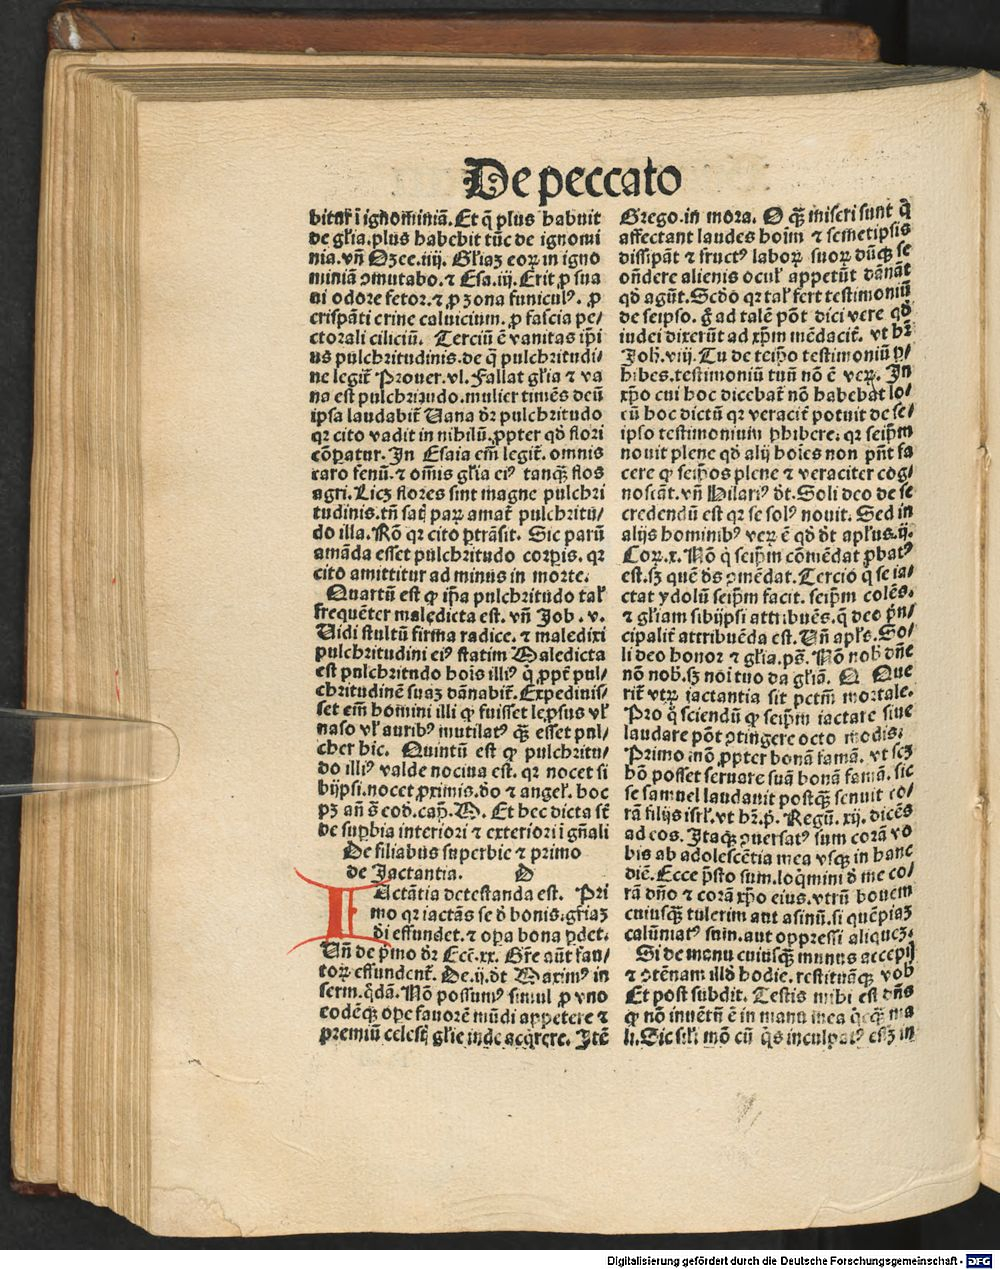 De peccato
bitur̃ ĩ ignominiã. Et q̃ plus habuit
de gl̃ia. plus habebit tũc de ignomi
nia. vñ Ozee. iiij. Gl̃iaz eoꝝ in igno
miniã ꝯmutabo. ⁊ Esa. iij. Erit ꝓ sua
ui odore fetor. ⁊ ꝓ zona funiculꝰ. ꝓ
crispãti crine caluicium. ꝓ fascia pe/
ctorali ciliciũ. Terciũ ẽ vanitas ip̃i
us pulchritudinis. de q̃ pulchritudi/
ne legit̃ Prouer. vl. Fallax gl̃ia ⁊ va
na est pulchritudo. mulier timẽs deũ
ipsa laudabit̃ Uana dr̃ pulchritudo
qꝛ cito vadit in nihilũ. ꝓpter qd̃ flori
cõparatur. In Esaia em̃ legit̃. omnis
caro fenũ. ⁊ om̃is gl̃ia eiꝰ tanqꝫ flos
agri. Licꝫ flores sint magne pulchri
tudinis. tñ satꝭ paꝝ amat̃ pulchritu/
do illa. Rõ qꝛ cito ꝑtrãsit. Sic parũ
amãda esset pulchritudo corꝑis. qꝛ
cito amittitur ad minus in morte.
Quartũ est ꝙ ip̃a pulchritudo tal̃
frequẽter maledicta est. vñ Job. v.
Uidi stultũ firma radice. ⁊ maledixi
pulchritudini eiꝰ statim Maledicta
est pulchritudo hoĩs illiꝰ q̇ ꝓpt̃ pul/
chritudinẽ suaz dãnabit̃. Expedinis/
set em̃ homini illi ꝙ fuisset leprosus vl̃
naso vl̃ auribꝰ mutilatꝰ qꝫ esset pul/
cher hic. Quintũ est ꝙ pulchritu/
do illiꝰ valde nociua est. qꝛ nocet si
bijpsi. nocet ꝓximis. deo ⁊ angel̃. hoc
pꝫ añ ẽ eod̃. cap̃. M. Et hec dicta sũt
de sup̃bia interiori ⁊ exteriori ĩ gñali
De filiabus superbie ⁊ primo
de Jactantia. D
IActãtia detestanda est. Pri
mo qꝛ iactãs se d̃ bonis. gr̃iaz
dei effundet. ⁊ oꝑa bona ꝑdet.
Uñ de p̃mo dr̃ Ecc̃. xx. Gr̃e aũt fau/
toꝝ effundent̃. De. ij. dt̃ Maximꝰ in
serm. q̃dã. Nõ possumꝰ simul ꝓ vno
eodẽqꝫ oꝑe fauorẽ mũdi appetere ⁊
premiũ celestꝭ gl̃ie inde acq̇rere. Itẽ
Grego. in mora. O qꝫ miseri sunt q̇
affectant laudes hoĩm ⁊ semetipsis
dissipãt ⁊ fructꝰ laboꝝ suoꝝ dũqꝫ se
oñdere alienis ocul̃ appetũt dãnãt
qd̃ agũt. Scd̃o qꝛ tal̃ fert testimoniũ
de seipso. g̃ ad talẽ põt dici vere qd̃
iudei dixerũt ad xp̃m mẽdacit̃. vt hr̃
Joh̃. viij. Tu de teip̃o testimoniũ ꝑ/
hibes. testimoniũ tuũ nõ ẽ veꝝ. In
xp̃o cui hoc dicebat̃ nõ habebat lo/
cũ hoc dictũ qꝛ veracit̃ potuit de se/
ipso testimonium ꝑhibere. qꝛ seip̃m
nouit plene qd̃ alij hoĩes non pñt fa
cere ꝙ seip̃os plene ⁊ veraciter cog/
noscãt. vñ Hilariꝰ dt̃. Soli deo de se
credendũ est qꝛ se solꝰ nouit. Sed in
alijs hominibꝰ veꝝ ẽ qd̃ dt̃ apl̃us. ij.
Coꝝ. x. Nõ q̇ seip̃m cõmẽdat ꝓbatꝰ
est. sꝫ quẽ de̾s ꝯmẽdat. Tercio q̇ se ia/
ctat ydolũ seip̃m facit. seip̃m colẽs.
⁊ gl̃iam sibijpsi attribuẽs. q̃ deo p̃n/
cipalit̃ attribuẽda est. Uñ apl̃s. So/
li deo honor ⁊ gl̃ia. ps̃. Nõ nob̃ dñe
nõ nob̃. sꝫ noĩ tuo da gl̃iã. Q Que
rit̃ vtꝝ iactantia sit pctm̃ mortale.
Pro q̊ sciendũ ꝙ seip̃m iactare siue
laudare põt ꝯtingere octo modis.
Primo mõ ꝓpter bonã famã. vt scꝫ
hõ posset seruare suã bonã famã. sic
se samuel laudauit postqꝫ senuit co/
rã filijs isrl̃. vt hr̃. p̃. Regũ. xij. dicẽs
ad eos. Itaqꝫ ꝯuersatꝰ sum corã vo
bis ab adolescẽtia mea vsqꝫ in hanc
diẽ. Ecce p̃sto sum. loq̇mini d̃ me co/
rã dño ⁊ corã xp̃o eius. vtrũ bouem
cuiusqꝫ tulerim aut asinũ. si quẽpiaz
calũniatꝰ sum. aut oppressi aliquez.
Si de manu cuiusqꝫ munus accepi
⁊ ꝯtẽnam illd̃ hodie. restituãqꝫ vob̃
Et post subdit. Testis mihi est dñs
ꝙ nõ inuẽtũ ẽ in manu mea q̇cqꝫ ma
li. Sic sil̃i mõ cũ q̇s inculpatꝰ esꝫ in
Digitalisierung gefördert durch die Deutsche Forschungsgemeinschaft - DFG